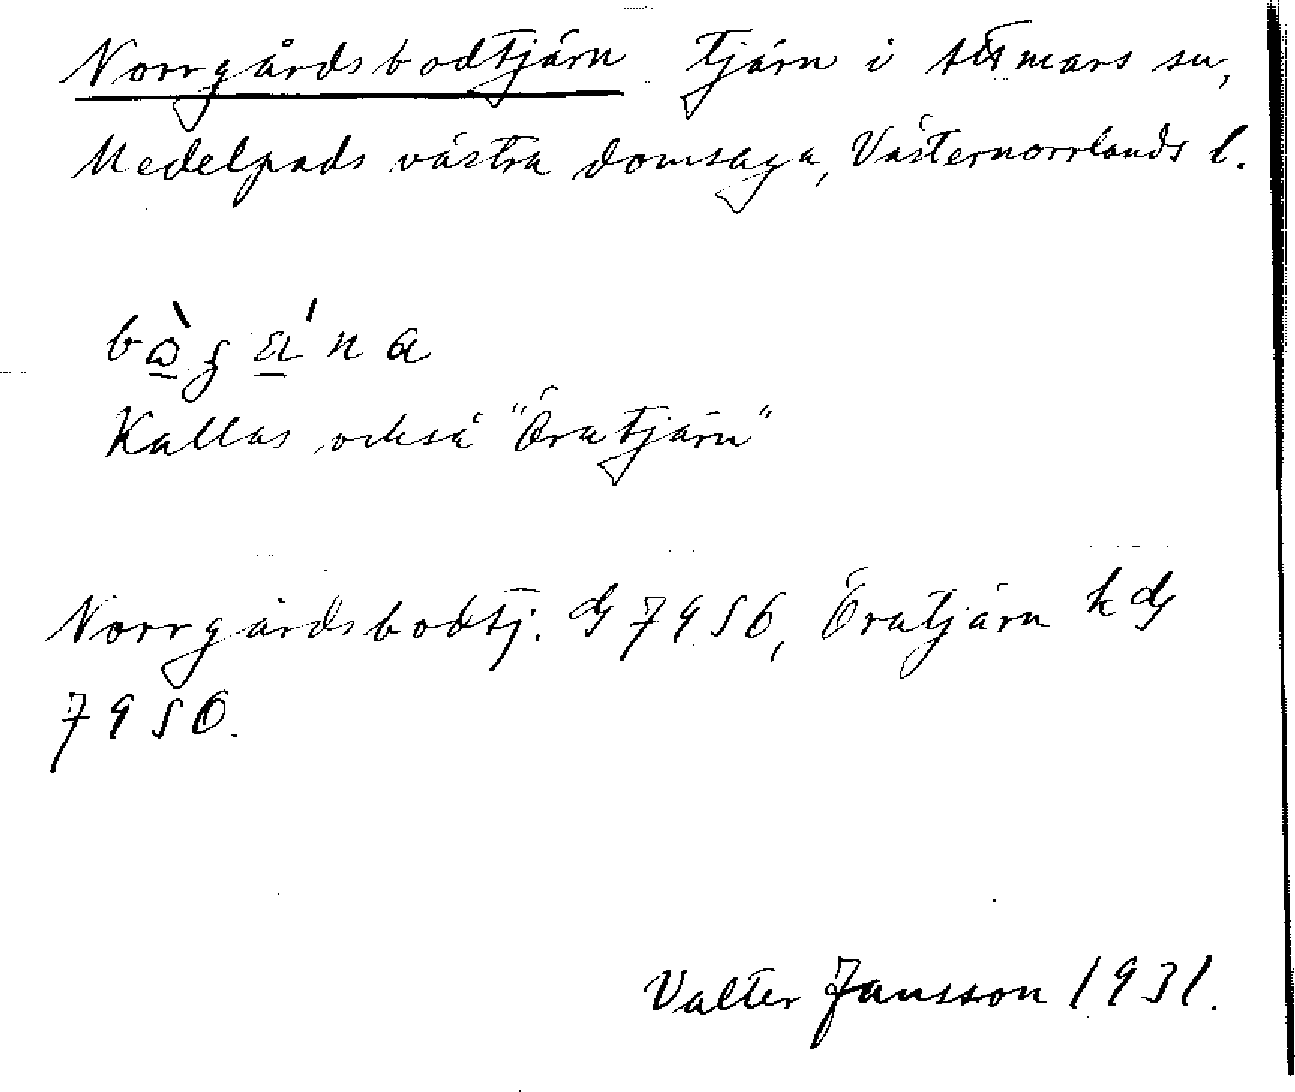 Norrgårdsbodtjärn Tjärn i Attmars sn,
Medelpads västra domsaga, Västernorrlands l.
Kallas också "Öratjärn"
Norrgårdsbodtj. G 7956, Öratjärn k G
7950.
Valter Jansson 1931.